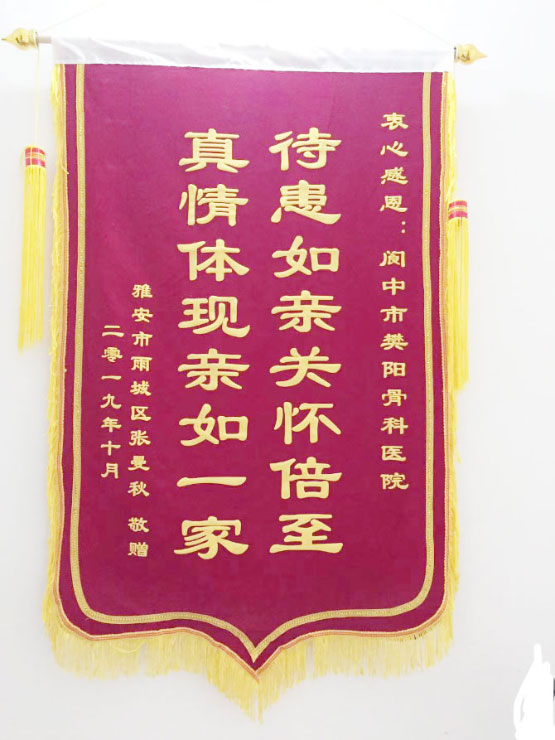 衷心感恩：阆中市樊阳骨科医院
待患如亲关怀倍至
真情体现亲如一家
雅安市雨城区张曼秋 敬赠
二零一九年十月